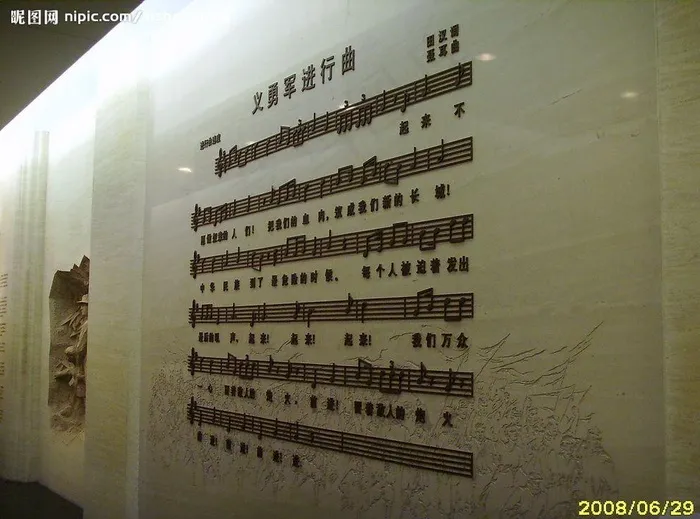 昵图网 nipic.com/
义勇军进行曲
田 汉 词
聂 耳 曲
起 来 不
愿做奴隶的 人 们! 把我们的 血 肉,筑成我们新的 长 城!
中 华 民 族 到了 最危险的时 候, 每 个人 被 迫着 发出
最后的吼 声, 起 来! 起 来! 起 来! 我们 万众
一 心 冒着敌人的 炮 火, 前进! 冒着敌人的 炮 火
前 进! 前 进! 前 进! 进
2008/06/29